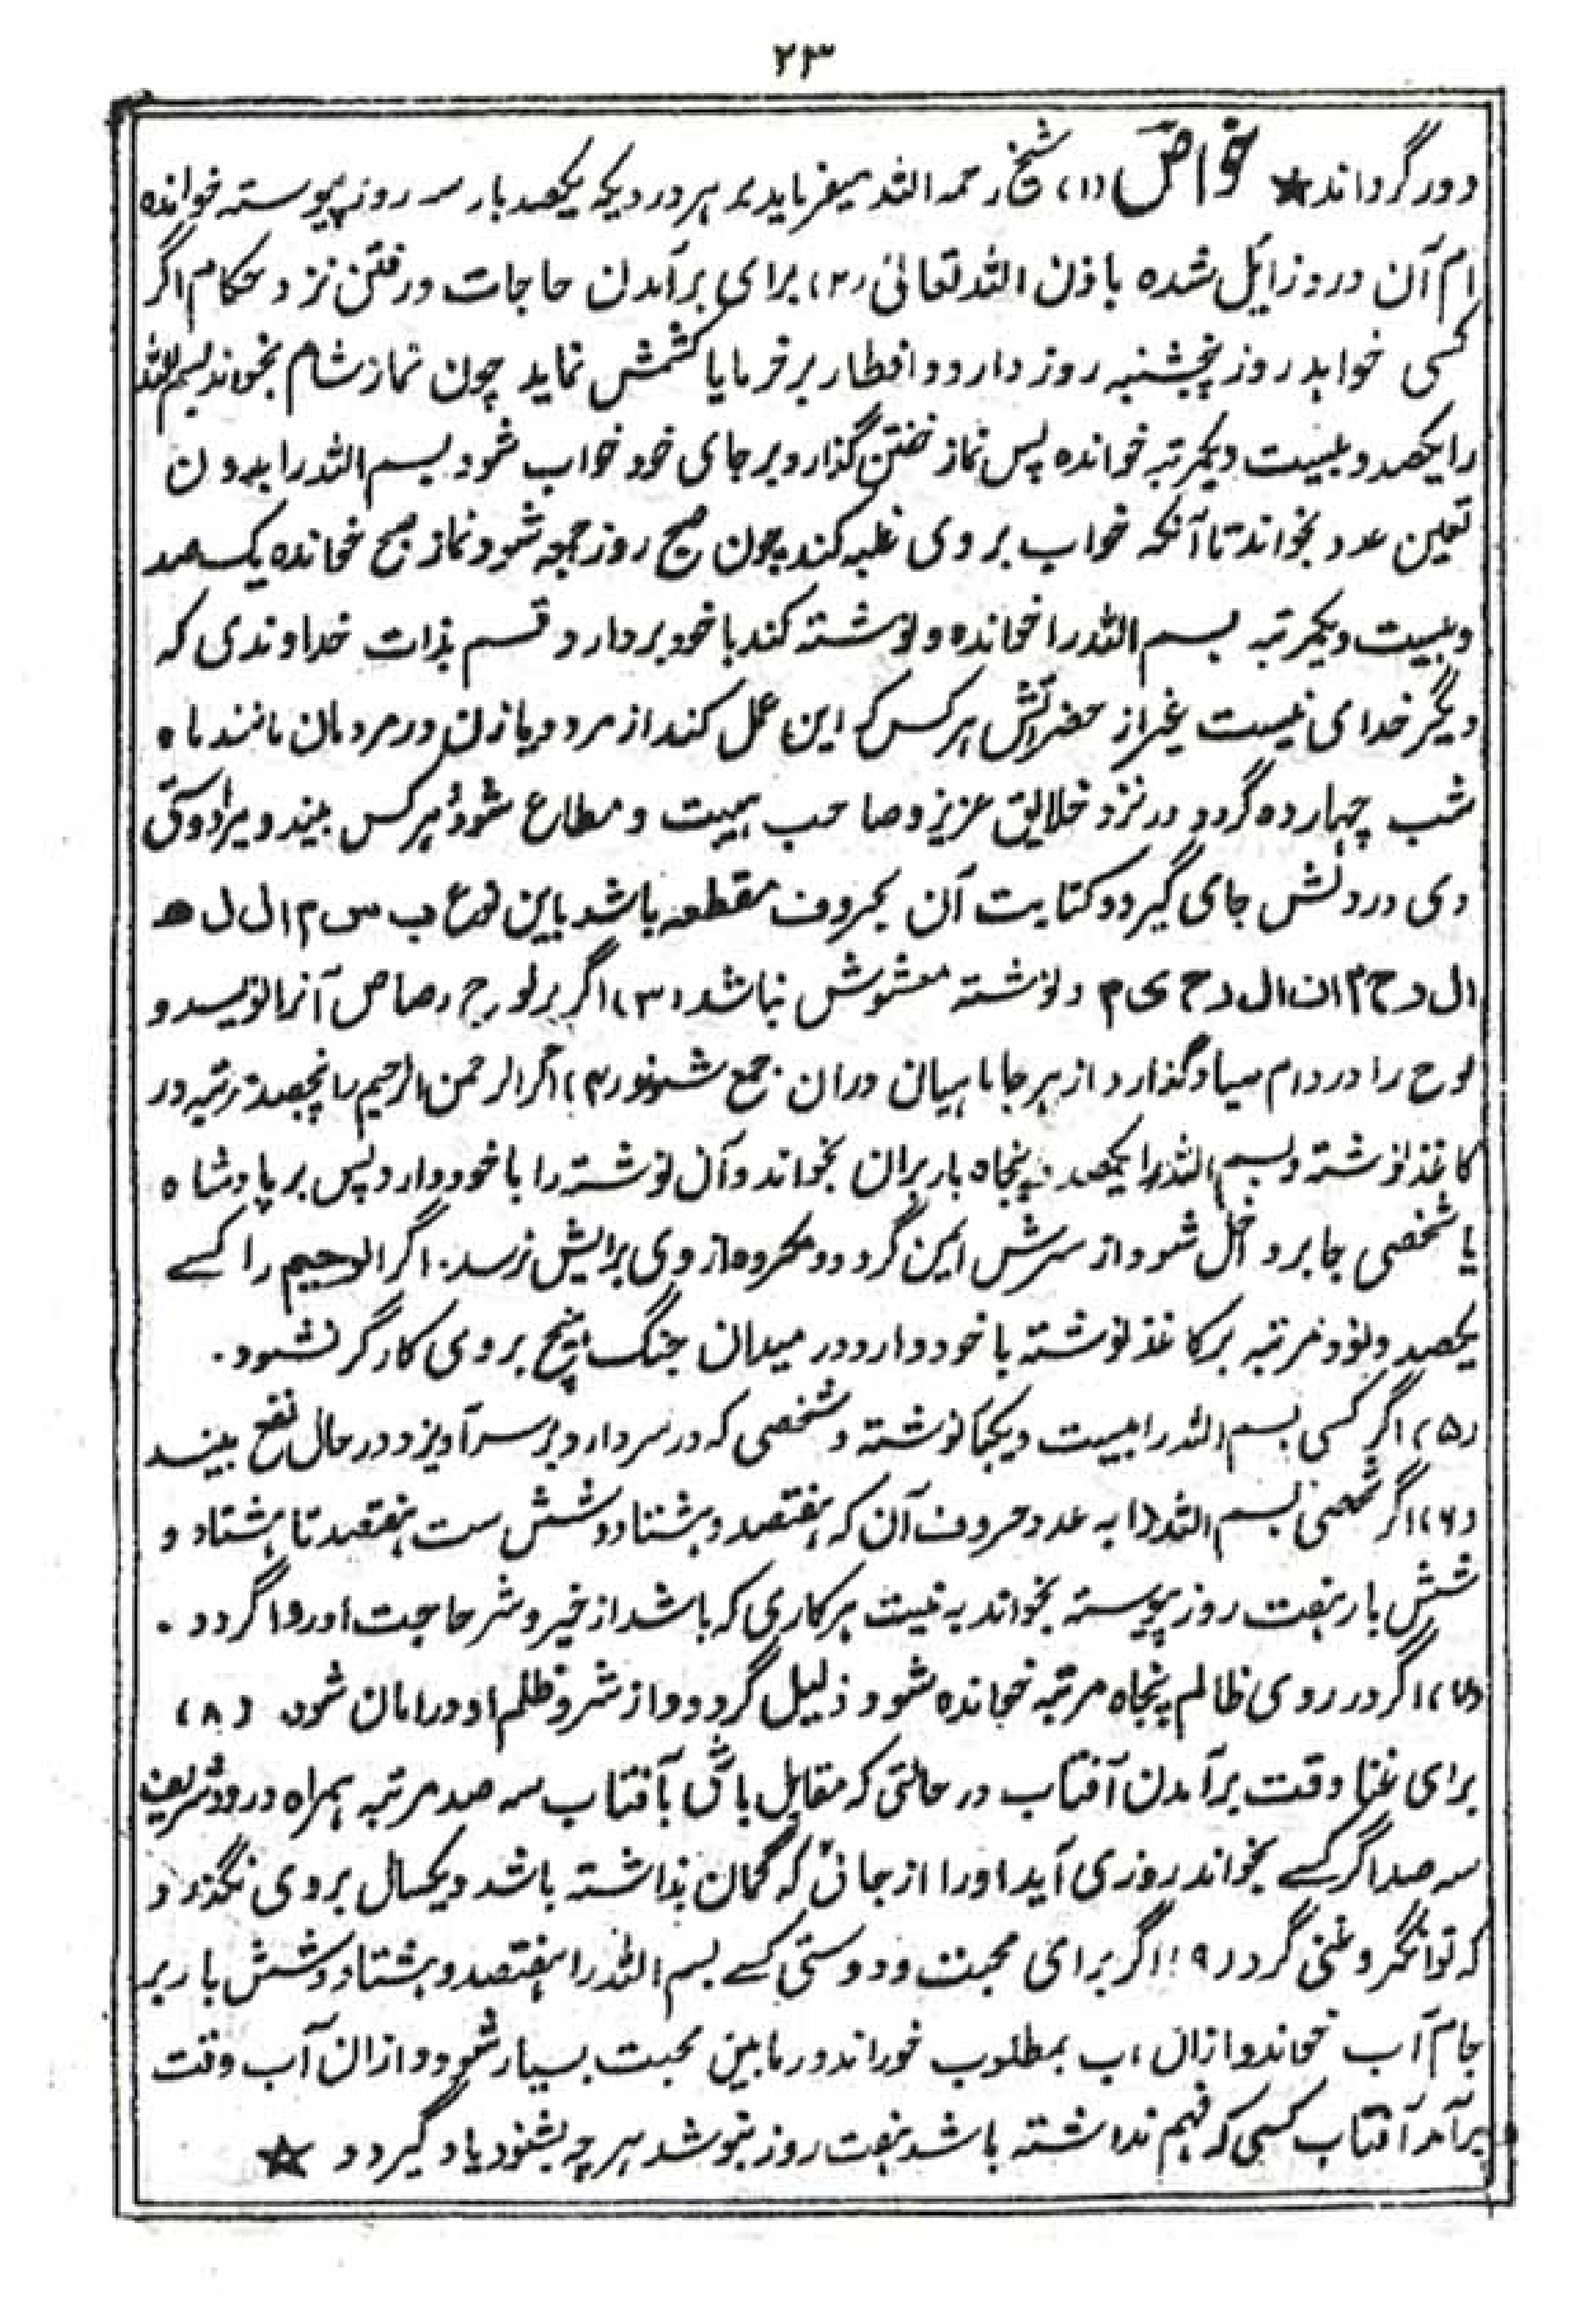 ۲۳
دور گرداند★ خواص (۱) شیخ رحمه الله میفرماید بر هر دردیکه یکصد بار سه روز پیوسته خوانده
ام آن درد زایل شده باذن الله تعالیٰ (۲) برای برآمدن حاجات و رفتن نزد حکام اگر
کسی خواهد روز پنجشنبه روزه دارد و افطار بر خرما یا کشمش نماید چون نماز شام بخواند بسم الله
را یکصد و بیست و یکمرتبه خوانده پس نماز خفتن گذارد بر جای خود خواب شود بسم الله را بدون
تعین عدد بخواند تا آنکه خواب بر وی غلبه کند چون صبح روز جمعه شود نماز صبح خوانده یک صد
و بیست و یکمرتبه بسم الله را خوانده و نوشته کند با خود بردارد قسم بذات خداوندی که
دیگر خدای نیست غیر از حضرتش هر کس که این عمل کند از مرد و یا زن در مردمان مانند ماه
شب چهارده گردد در نزد خلایق عزیز و صاحب هیبت و مطاع شود هر کس بیند ویرا دوستی
وی در دلش جای گیرد و کتابت آن بحروف مقطعه باشد باین نوع ب س م ا ل ل ه
ا ل ر ح م ا ن ا ل ر ح ی م و نوشته مغشوش نباشد (۳) اگر بر لوح رصاص آنرا نویسد و
لوح را در دام صیاد گذارد از هر جا ماهیان دران جمع شوند (۴) اگر الرحمن الرحیم را پنجصد مرتبه در
کاغذ نوشته و بسم الله را یکصد و پنجاه بار بران بخواند و آن نوشته را با خود دارد پس بر پادشاه
یا شخصی جابر داخل شود از سرش ایمن گردد و مکروه از وی برایش نرسد. اگر الرحیم را کسے
یکصد و نود مرتبه بر کاغذ نوشته با خود دارد در میدان جنگ هیچ بر وی کارگر نشود.
(۵) اگر کسی بسم الله را بیست و یکجا نوشته و شخصی که درد سر دارد بر سر آویزد در حال نفع بیند
(۶) اگر شخصی بسم الله را به عدد حروف آن که هفتصد و هشتاد و شش ست هفتصد تا هشتاد و
شش بار هفت روز پیوسته بخواند به نیت هر کاری که باشد از خیر و شر حاجت او روا گردد.
(۷) اگر در روی ظالم پنجاه مرتبه خوانده شود ذلیل گردد و از شر و ظلم او در امان شود. (۸)
برای غنا وقت برآمدن آفتاب در حالتی که مقابل باشی بآفتاب سه صد مرتبه همراه درود شریف
سه صد اگر کسے بخواند روزی آید او را از جائی که گمان نداشته باشد و یکسال بر وی نگذرد
که توانگر و غنی گردد (۹) اگر برای محبت و دوستی کسے بسم الله را هفتصد و هشتاد و شش بار بر
جام آب خواند و ازان آب بمطلوب خوراند در مابین محبت بسیار شود و ازان آب وقت
برآمد آفتاب کسی که فهم نداشته باشد هفت روز بنوشد هر چه بشنود یاد گیرد ★